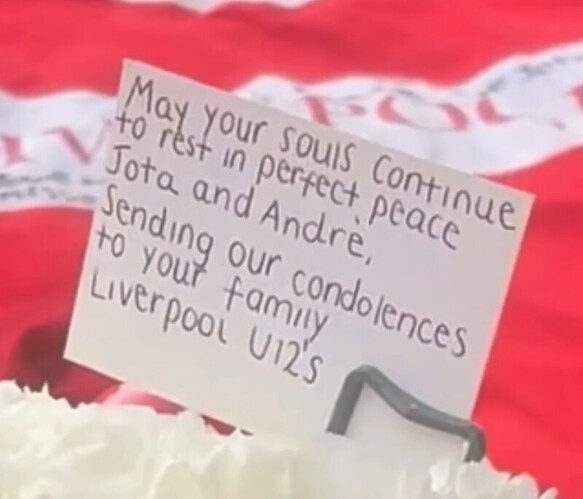 May your souls continue
to rest in perfect peace
Jota and Andrè,
Sending our condolences
to your family
Liverpool U12's